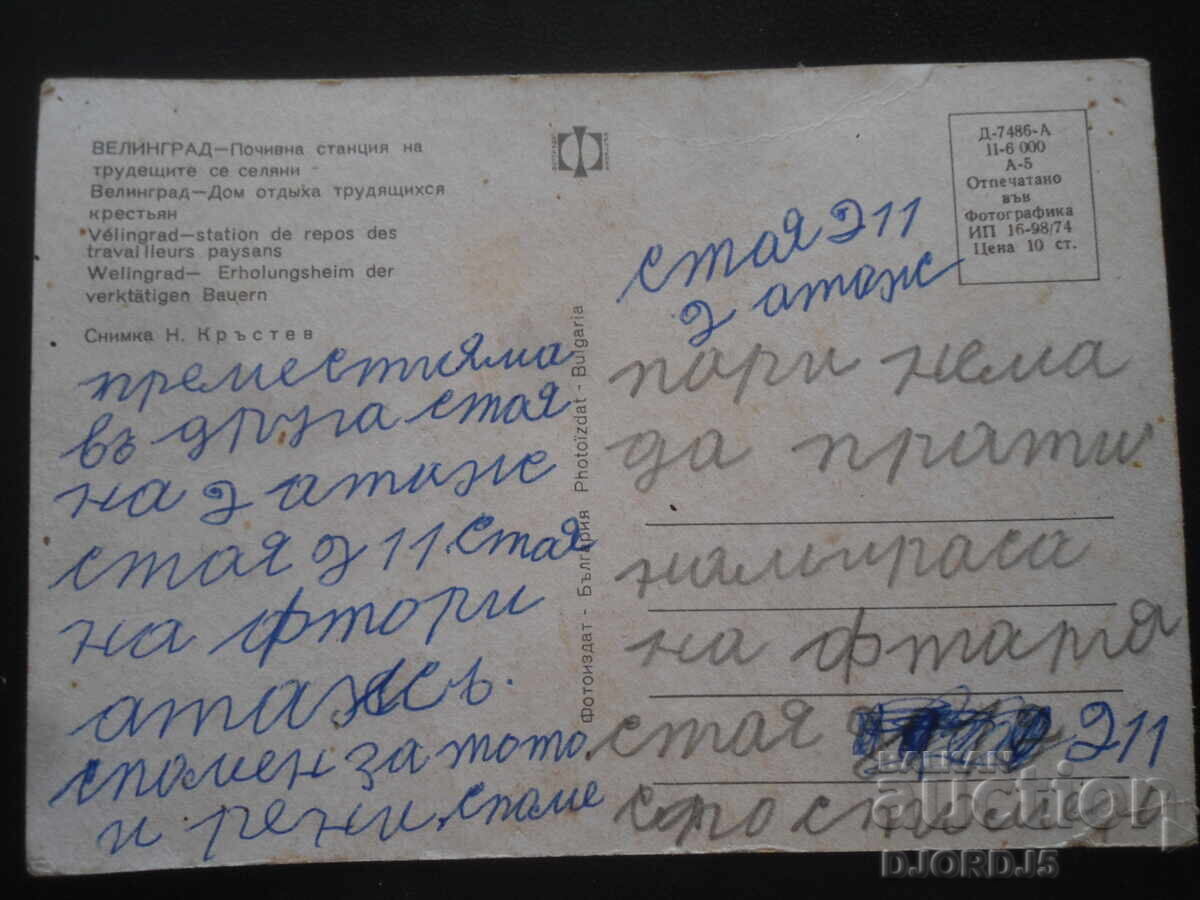 ВЕЛИНГРАД—Почивна станция на
трудещите се селяни
Велинград—Дом отдыха трудящихся
крестьян
Vélingrad—station de repos des
travailleurs paysans
Welingrad— Erholungsheim der
verktätigen Bauern
Снимка Н. Кръстев
преместияма
въ друга стая
на 2 атаж
стая 211 стая
на фтори
атажь.
спомен за тото
и речи споме
Фотоиздат - България Photoïzdat - Bulgaria
Д-7486-А
11-6 000
А-5
Отпечатано
във
Фотографика
ИП 16-98/74
Цена 10 ст.
стая 211
2 атаж
пари нема
да прати
намираса
на фтария
стая 211
BALKAN
auction
DJORDJ5